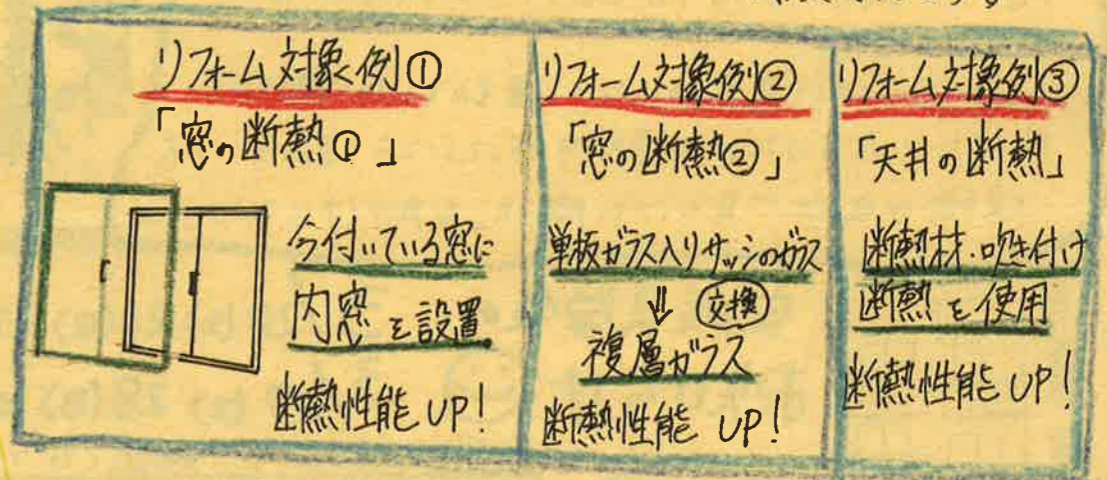 リフォーム対象例①
「窓の断熱①」
今付いている窓に
内窓を設置
断熱性能UP!
リフォーム対象例②
「窓の断熱②」
単板ガラス入りサッシのガラス
⇓ 交換
複層ガラス
断熱性能UP!
リフォーム対象例③
「天井の断熱」
断熱材・吹き付け
断熱を使用
断熱性能UP!